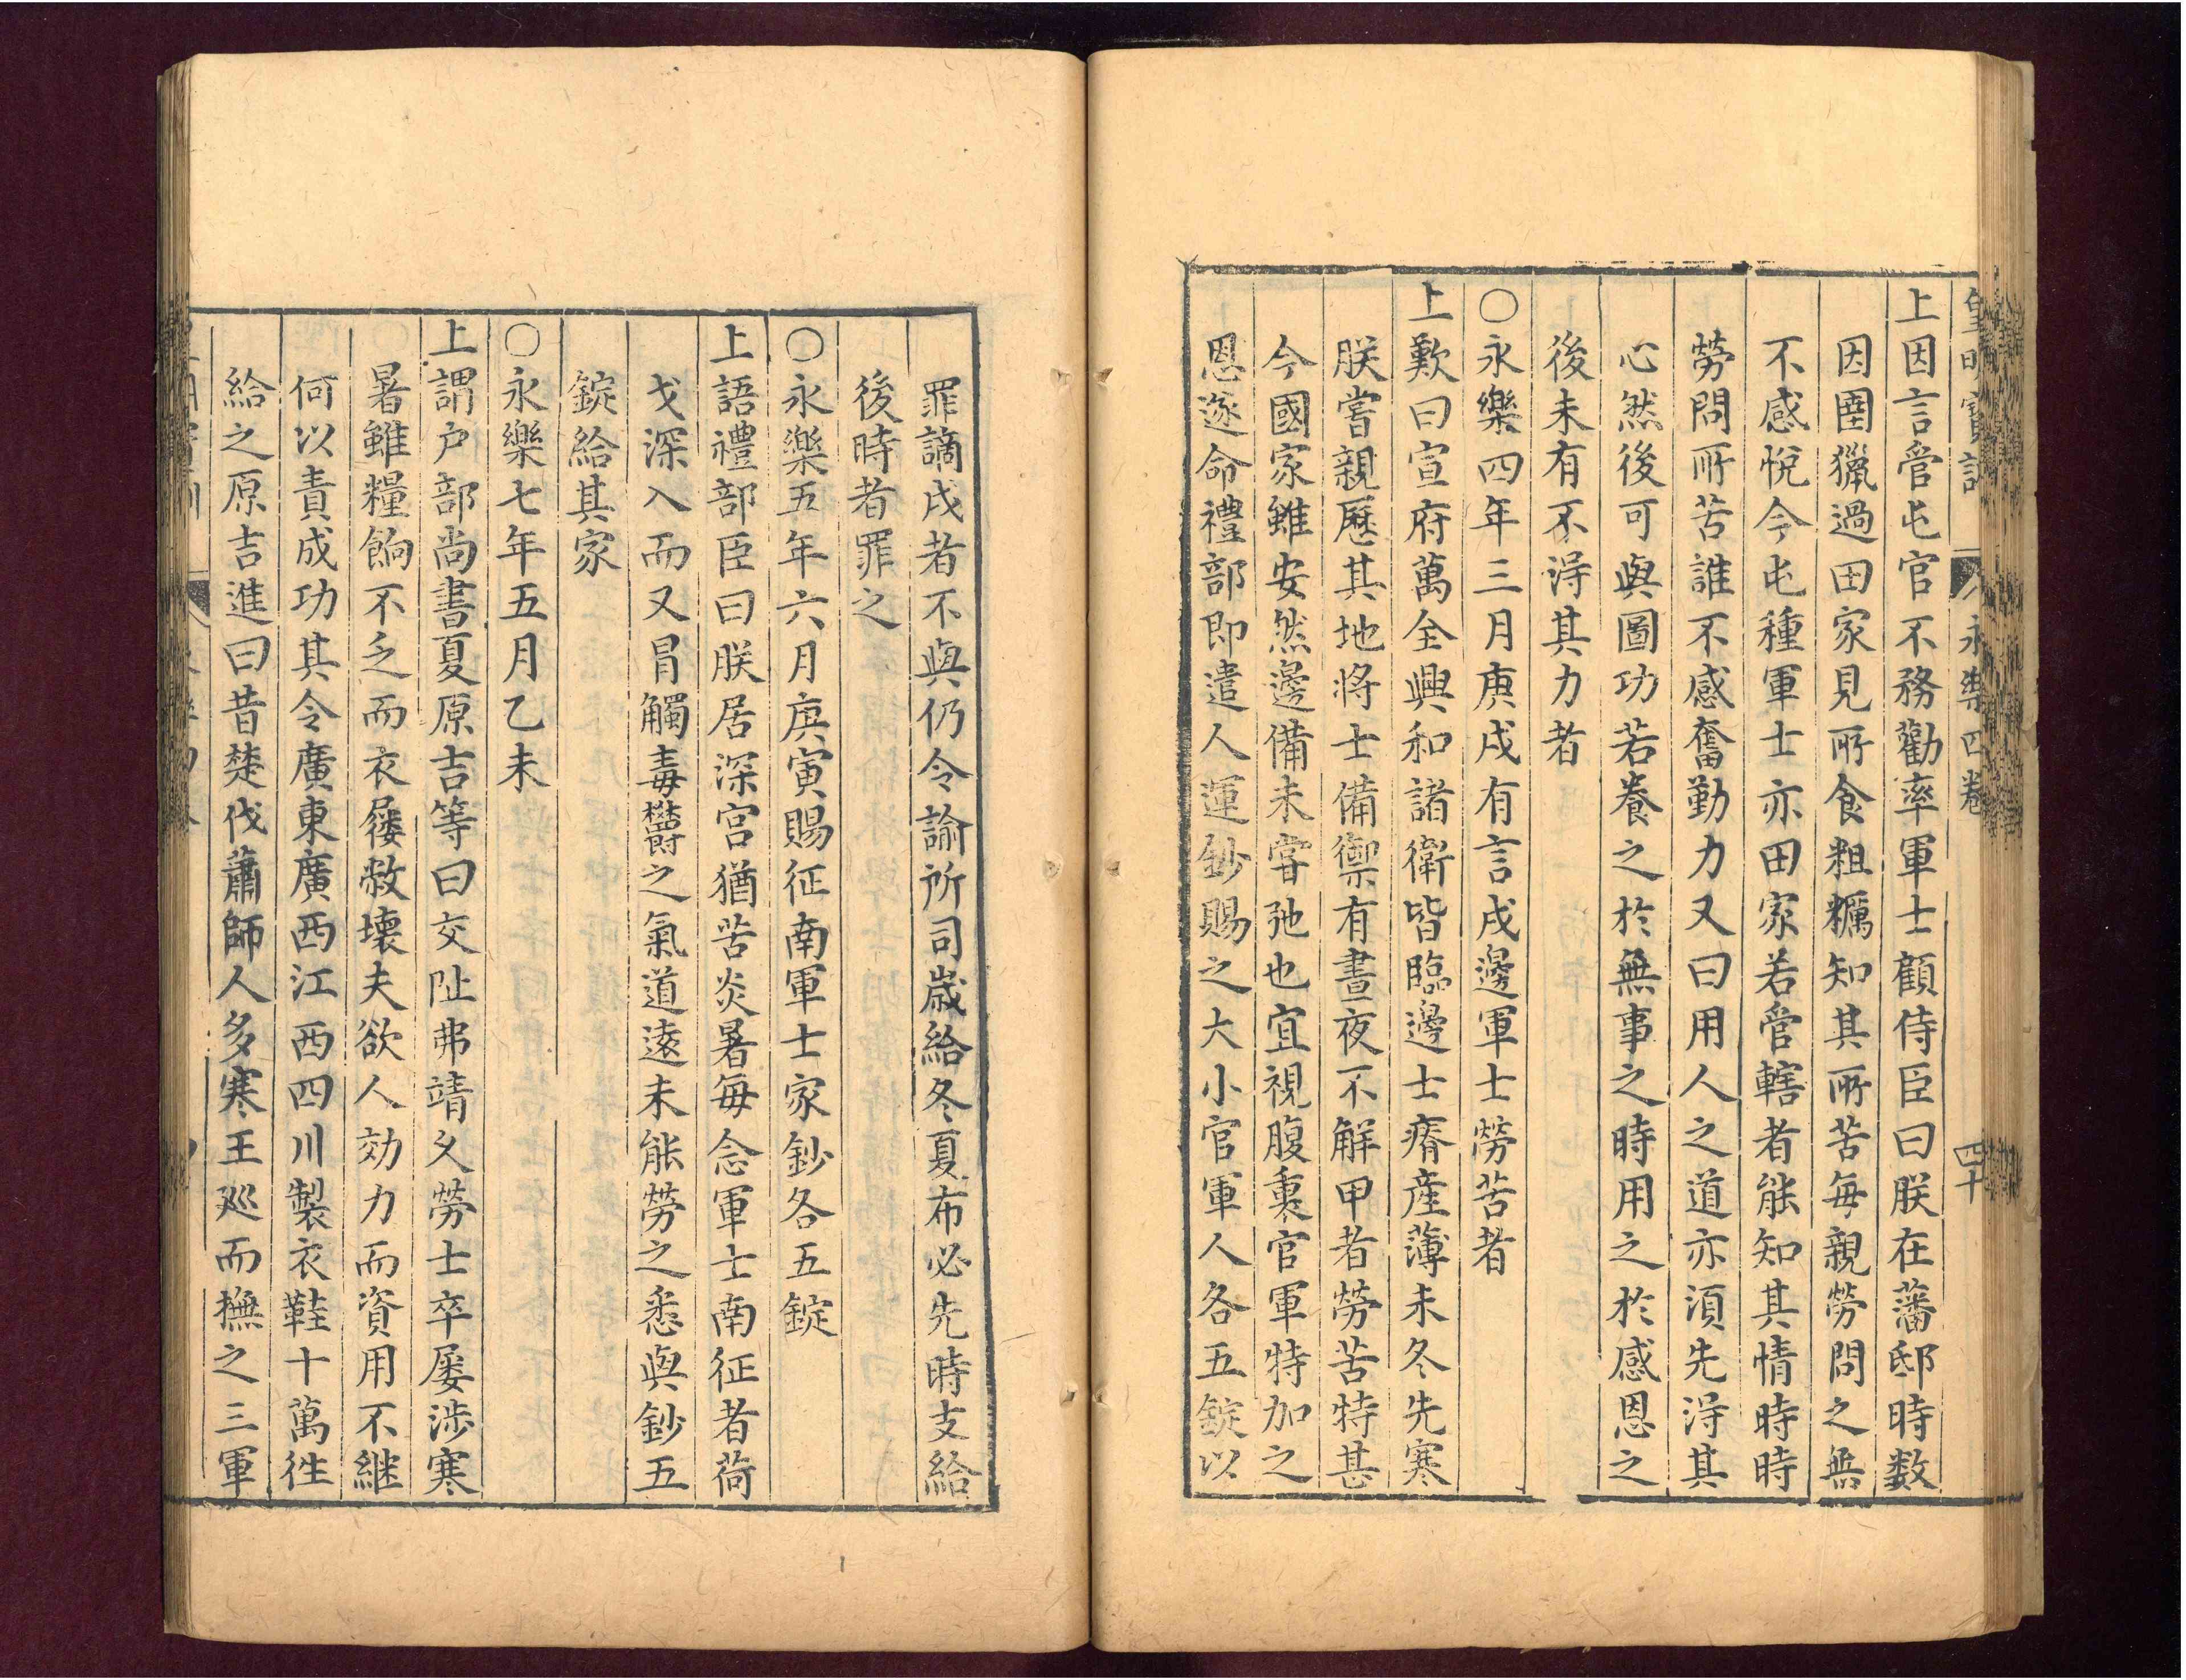 皇明寶訓 永樂四卷 四十
上因言管屯官不務勸率軍士顧侍臣曰朕在藩邸時数
因圍獵過田家見所食粗糲知其所苦每親勞問之無
不感悅今屯種軍士亦田家若管轄者能知其情時時
勞問所苦誰不感奮勤力又曰用人之道亦須先淂其
心然後可與圖功若養之於無事之時用之於感恩之
後未有不淂其力者
○永樂四年三月庚戌有言戍邊軍士勞苦者
上歎曰宣府萬全興和諸衛皆臨邊士瘠産薄未冬先寒
朕嘗親歷其地將士備禦有晝夜不解甲者勞苦特甚
今國家雖安然邊備未嘗弛也宜視腹裏官軍特加之
恩遂命禮部即遣人運鈔賜之大小官軍人各五錠以
罪謫戍者不與仍令諭所司歲給冬夏布必先時支給
後時者罪之
○永樂五年六月庚寅賜征南軍士家鈔各五錠
上語禮部臣曰朕居深宮猶苦炎暑每念軍士南征者荷
戈深入而又冐觸毒欝之氣道遠未能勞之悉與鈔五
錠給其家
○永樂七年五月乙未
上謂户部尚書夏原吉等曰交阯弗靖乆勞士卒屡涉寒
暑雖糧餉不乏而衣屨敝壞夫欲人効力而資用不継
何以責成功其令廣東廣西江西四川製衣鞋十萬徃
給之原吉進曰昔楚伐蕭師人多寒王廵而撫之三軍